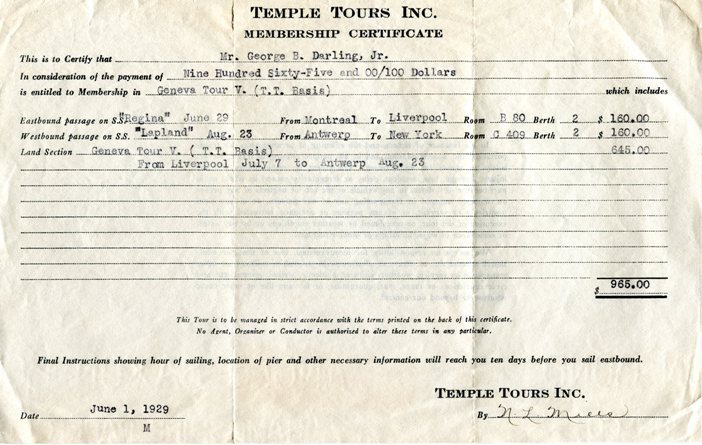 TEMPLE TOURS INC.
MEMBERSHIP CERTIFICATE
This is to Certify that Mr. George B. Darling, Jr.
In consideration of the payment of Nine Hundred Sixty-Five and 00/100 Dollars
is entitled to Membership in Geneva Tour V. (T.T. Basis) which includes
Eastbound passage on S.S. "Regina" June 29 From Montreal To Liverpool Room B 80 Berth 2 $ 160.00
Westbound passage on S.S. "Lapland" Aug. 23 From Antwerp To New York Room C 409 Berth 2 $ 160.00
Land Section Geneva Tour V. ( T.T. Basis) 645.00
From Liverpool July 7 to Antwerp Aug. 23
$ 965.00
This Tour is to be managed in strict accordance with the terms printed on the back of this certificate.
No Agent, Organiser or Conductor is authorised to alter these terms in any particular.
Final Instructions showing hour of sailing, location of pier and other necessary information will reach you ten days before you sail eastbound.
TEMPLE TOURS INC.
Date June 1, 1929 By N. L. Mills
M